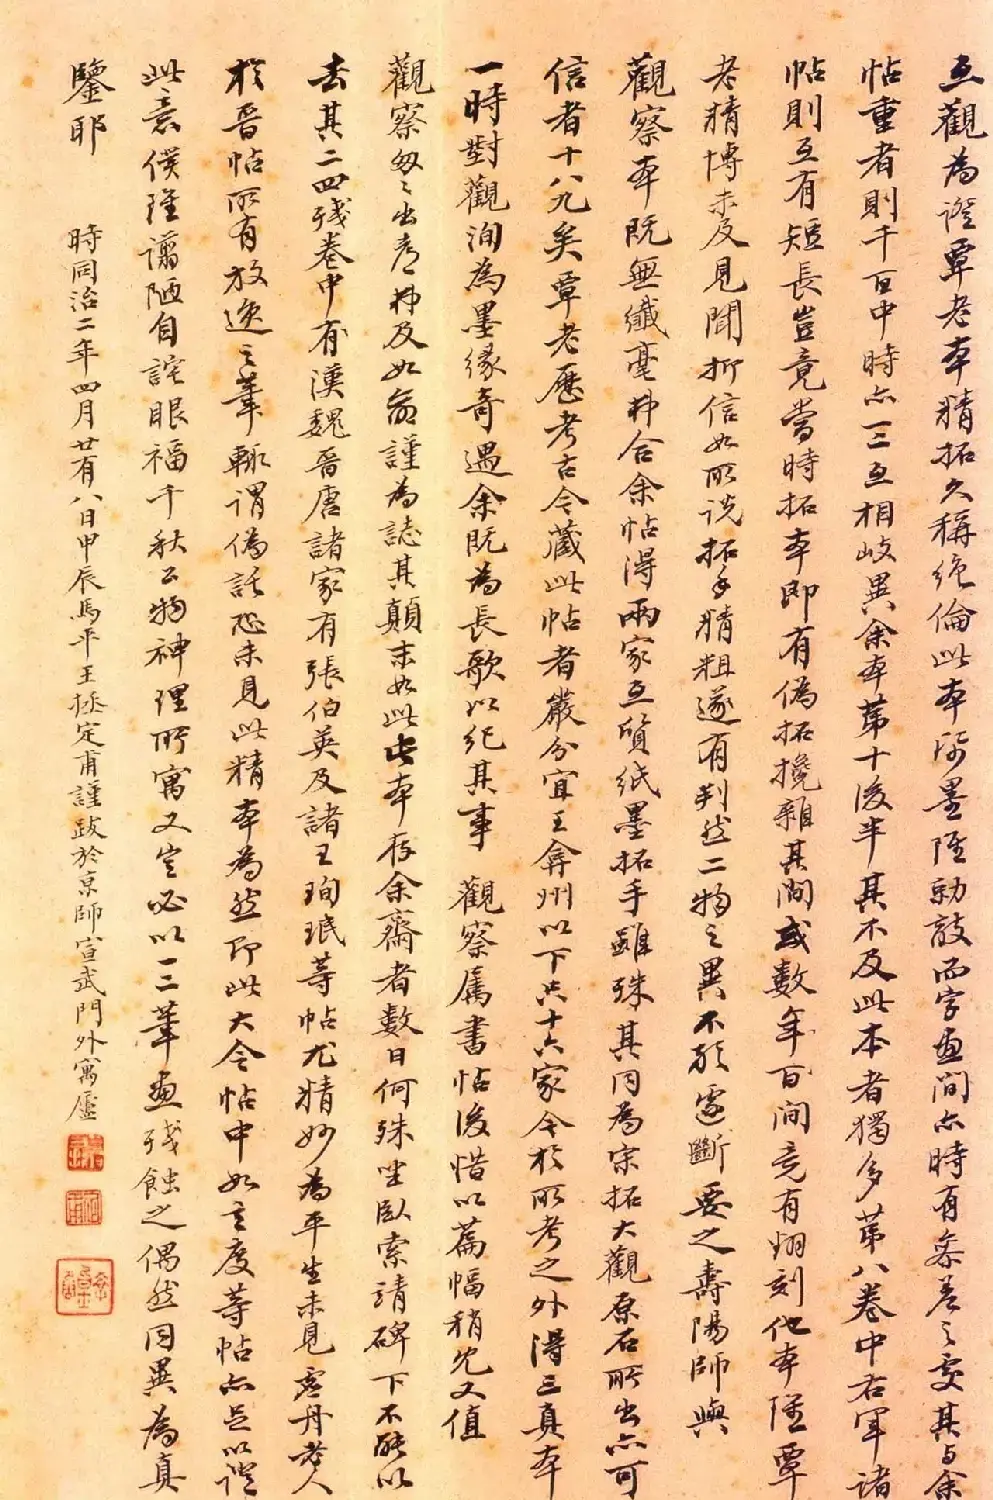 互觀為證覃老本精拓久稱絕倫此本所墨陸勑敲而字畫間亦時有參差之處其與余
帖重者則千百中時亦一二互相歧異余本第十後半其不及此本者獨多第八卷中右軍諸
帖則互有短長豈竟當時拓本即有偽拓攙雜其間或數年百間竟有翻刻他本陸覃
老精博未及見聞抑信如所說拓手精粗遂有判然二物之異不能遽斷要之壽陽師與
觀察本既無纖毫弗合余帖得兩家互質紙墨拓手雖殊其同為宋拓大觀原石所出亦可
信者十八九矣覃老歷考古今藏此帖者嚴分宜王弇州以下共十六家今於所考之外得三真本
一時對觀洵為墨緣奇遇余既為長歌以紀其事 觀察屬書帖後惜以篇幅稍允又值
觀察匆匆出都弗及如命謹為誌其顛末如此此本存余齋者數日何殊坐臥索靖碑下不能以
去其二四殘卷中有漢魏晉唐諸家有張伯英及諸王珣珉等帖尤精妙為平生未見寶丹老人
於晉帖所有放逸之筆輒謂偽託恐未見此精本為然即此大令帖中如玄度等帖亦足以證
此意僕雖譾陋自詫眼福千秋公物神理所寓又豈必以一二筆畫殘蝕之偶然同異為真
鑒耶 時同治二年四月廿有八日甲辰馬平王拯定甫謹跋於京師宣武門外寓廬